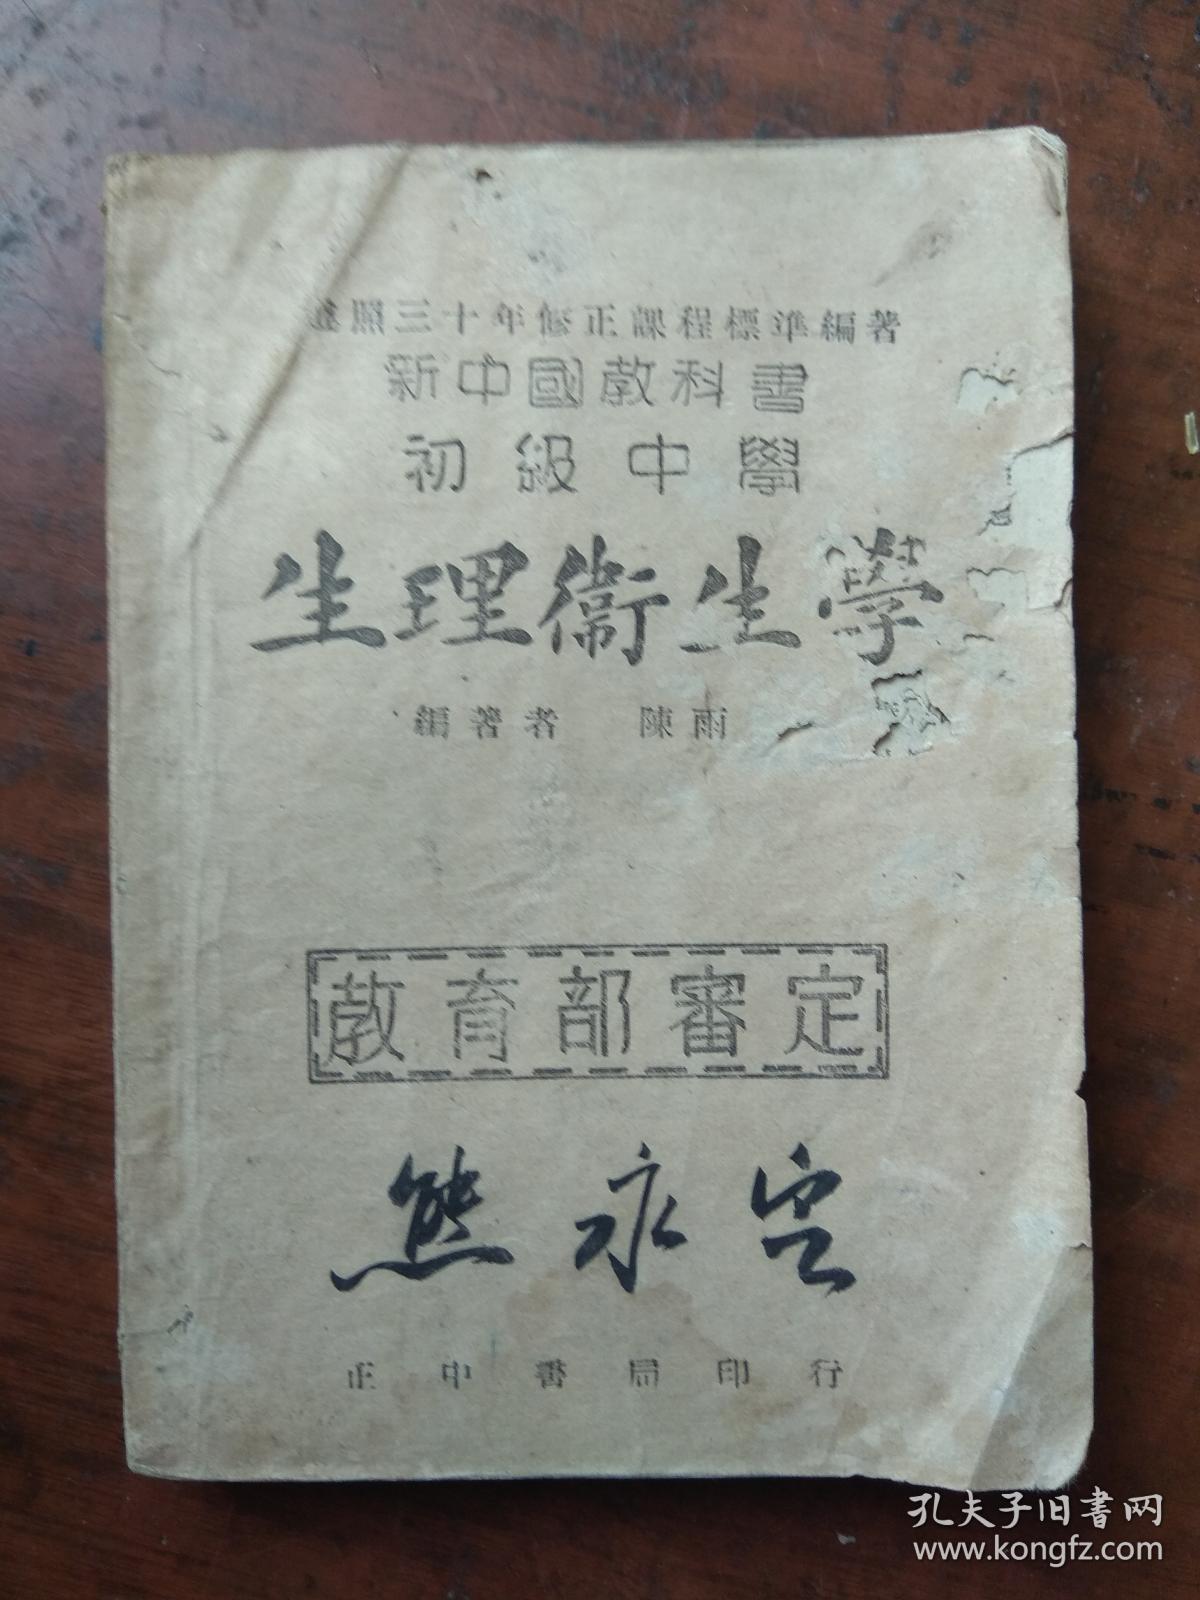 遵照三十年修正課程標準編著
新中國教科書
初級中學
生理衞生學
編著者 陳雨
教育部審定
熊永
正中書局印行
孔夫子旧书网
www.kongfz.com